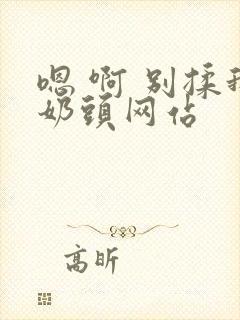 嗯 啊 别揉我
奶頭网佔
高昕